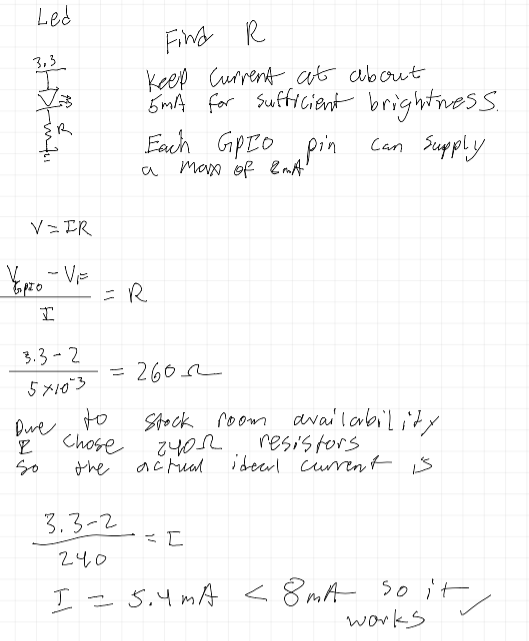 Led
Find R
3.3
R
Keep current at about
5mA for sufficient brightness.
Each GPIO pin can supply
a max of 8mA
V = IR
V_GPIO - V_F
——— = R
I
3.3 - 2
——— = 260Ω
5×10^-3
Due to stock room availability
I chose 240Ω resistors
So the actual ideal current is
3.3-2
——— = I
240
I = 5.4mA < 8mA so it
works ✓